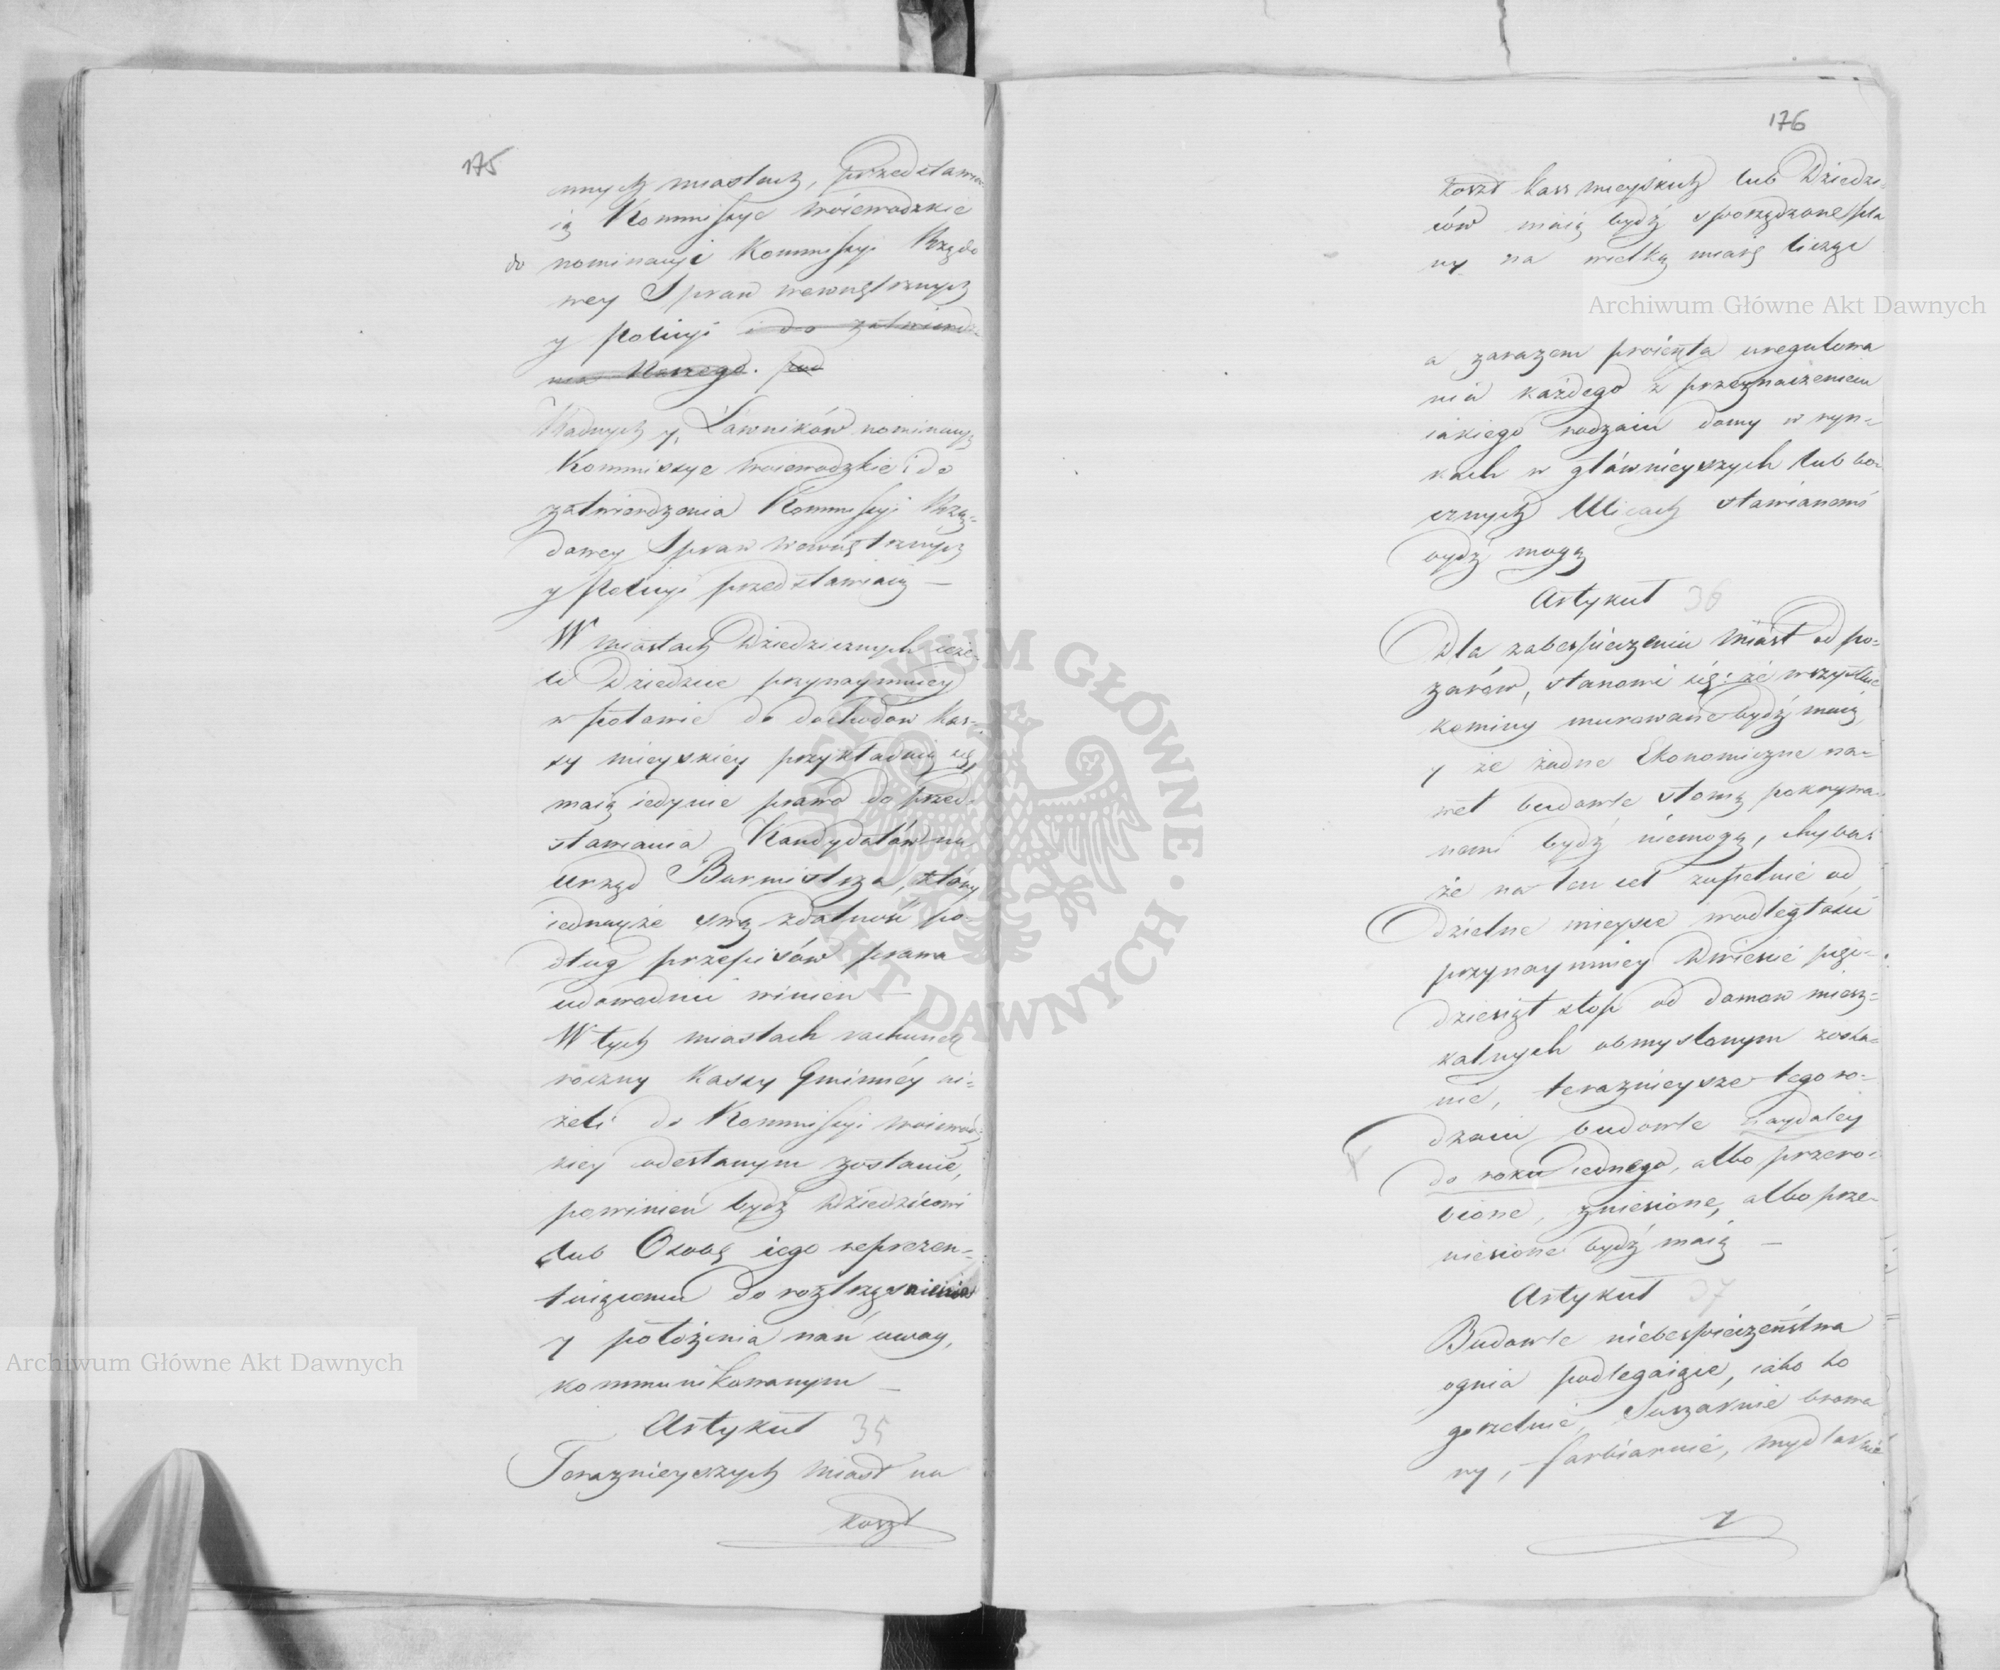 175
nnych miastach, przedstawia
ią Kommissye Woiewodzkie
do nominacyi Kommissyi Rządo
wey Spraw wewnętrznych
y Policyi i do zatwierdze
nia Naszego.
Radnych y Ławników nominuią
Kommissye Woiewodzkie i do
zatwierdzenia Kommissyi Rzą-
dowey Spraw Wewnętrznych
y Policyi przedstawiaią —
W miastach Dziedzicznych ieże-
li Dziedzice przynaymniey
w połowie do dochodow Kas-
sy mieyskiey przykładaią się,
maią iedynie prawo do przed-
stawiania Kandydatów na
urząd Burmistrza, który
iednakże swą zdatność po-
dług przepisów prawa
udowodnić winien —
W tych miastach rachunek
roczny Kassy Gminnéy ni-
żeli do Kommissyi Woiewodz
kiey odesłanym zostanie,
powinien bydź Dziedzicowi
lub Osobę iego reprezen-
tuiącemu do roztrząśnienia
y położenia nań uwag,
kommunikowanym —
Artykuł 35
Teraznieyszych Miast na
koszt
176
koszt kass mieyskich lub Dziedzi-
ców maią bydź sporządzone pla
ny na wielką miarę licząc
a zarazem proiekta uregulowa
nia każdego z przeznaczeniem
iakiego rodzaiu domy w ryn-
kach w główniéyszych lub bo-
cznych Ulicach stawianemi
bydź mogą
Artykuł 36
Dla zabespieczenia Miast od po-
żarów, stanowi się: że wszystkie
kominy murowane bydź maią
y że żadne Ekonomiczne na-
wet budowle słomą pokrywa-
nemi bydź niemogą, chyba
że na ten cel zupełnie od
dzielne mieysce w odległości
przynaymniey Dwieście pięć-
dziesiąt stop od domow miesz-
kalnych obmyslonym zosta-
nie, teraznieysze tego ro-
dzaiu budowle naydaley
do roku iednego, albo przero-
bione, zniesione, albo prze-
niesione bydź maią —
Artykuł 37
Budowle niebespieczeństwa
ognia podlegaiące, iako to
gorzelnie, Suszarnie browa
ry, farbiarnie, mydlarnie
y
Archiwum Główne Akt Dawnych
Archiwum Główne Akt Dawnych
ARCHIWUM GŁÓWNE · AKT DAWNYCH ·